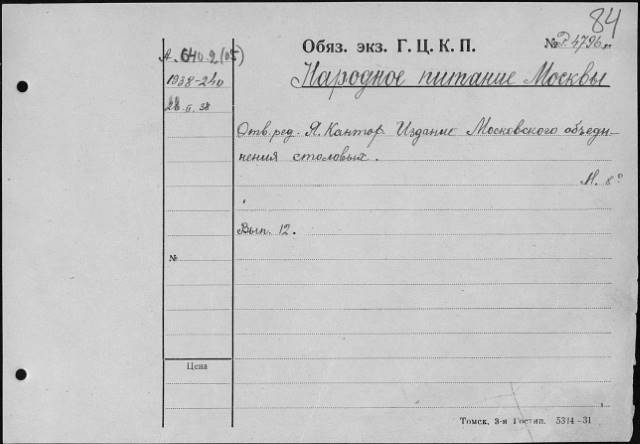 84
Обяз. экз. Г. Ц. К. П.
№ Р. 4796
А. 640.9(05)
1938-240
Народное питание Москвы
22. II. 38
Отв. ред. Я. Кантор Издание Московского объеди-
нения столовых.
М. 8°
Вып. 12.
№
Цена
Томск, 3-я Гостип. 5314-31